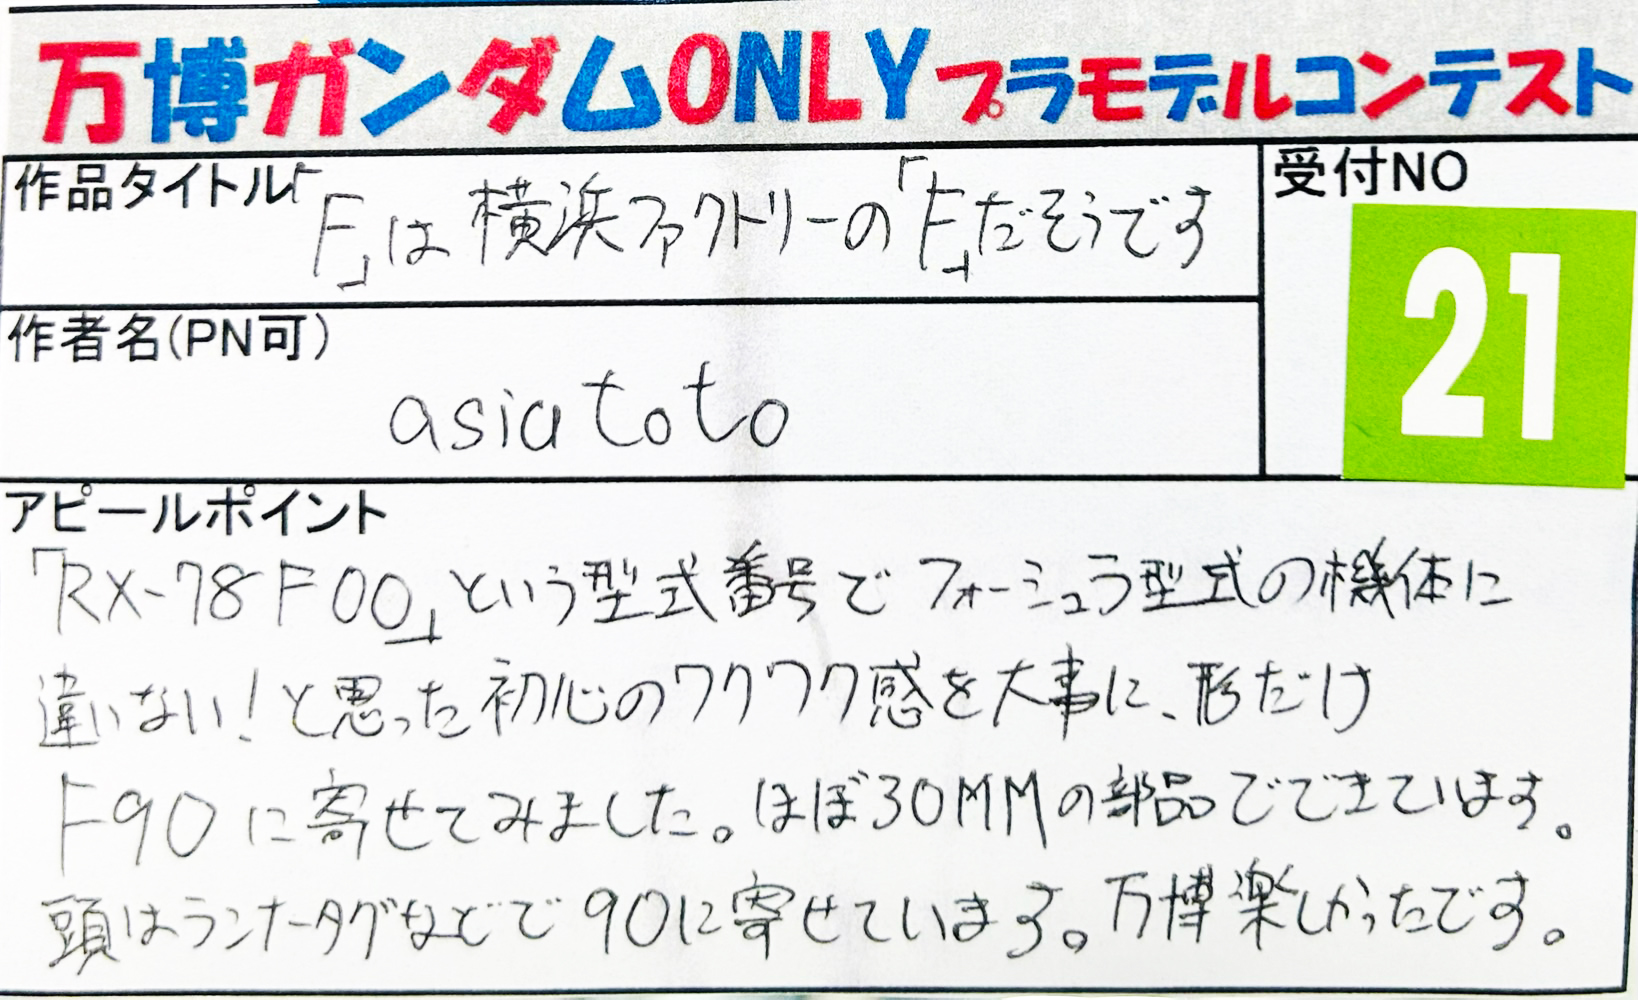 万博ガンダムONLYプラモデルコンテスト
作品タイトル
「F」は横浜ファクトリーの「F」だそうです
受付NO
21
作者名(PN可)
asiatoto
アピールポイント
「RX-78F00」という型式番号でフォーミュラ型式の機体に
違いない!と思った初心のワクワク感を大事に、形だけ
F90に寄せてみました。ほぼ30MMの部品でできています。
頭はランナータグなどで90に寄せています。万博楽しかったです。